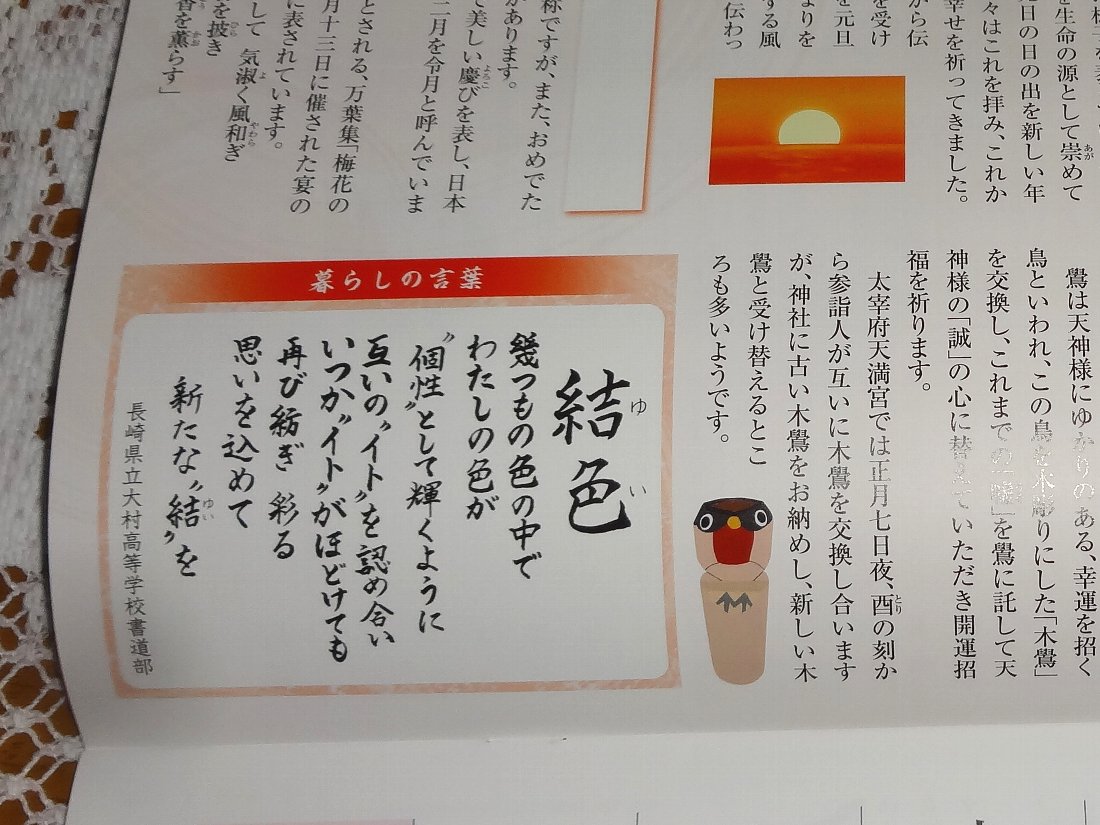 を生命の源として崇めて
日の日の出を新しい年
々はこれを拝み、これか
幸せを祈ってきました。
から伝
を受け
を元旦
よりを
する風
伝わっ
鷽は天神様にゆかりのある、幸運を招く
鳥といわれ、この鳥を木彫りにした「木鷽」
を交換し、これまでの「嘘」を鷽に託して天
神様の「誠」の心に替えていただき開運招
福を祈ります。
太宰府天満宮では正月七日夜、酉の刻か
ら参詣人が互いに木鷽を交換し合います
が、神社に古い木鷽をお納めし、新しい木
鷽と受け替えるとこ
ろも多いようです。
称ですが、また、おめでた
があります。
で美しい慶びを表し、日本
二月を令月と呼んでいま
とされる、万葉集「梅花の
月十三日に催された宴の
に表されています。
して 気淑く風和ぎ
を披き
香を薫らす」
暮らしの言葉
結色
ユ い
幾つもの色の中で
わたしの色が
〝個性〟として輝くように
互いの〝イト〟を認め合い
いつか〝イト〟がほどけても
再び紡ぎ 彩る
思いを込めて
新たな〝結〟を
長崎県立大村高等学校書道部